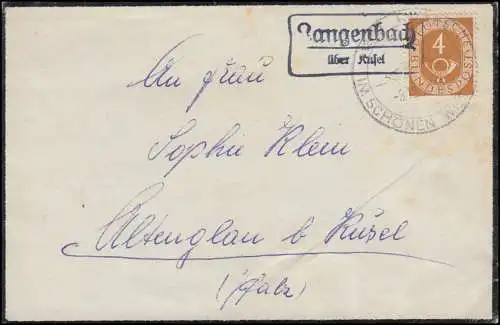 Langenbach
über Kusel
DEUTSCHE
4
BUNDESPOST
IM SCHÖNEN
An Frau
Sophie Klein
Altenglan b Kusel
(Pfalz)